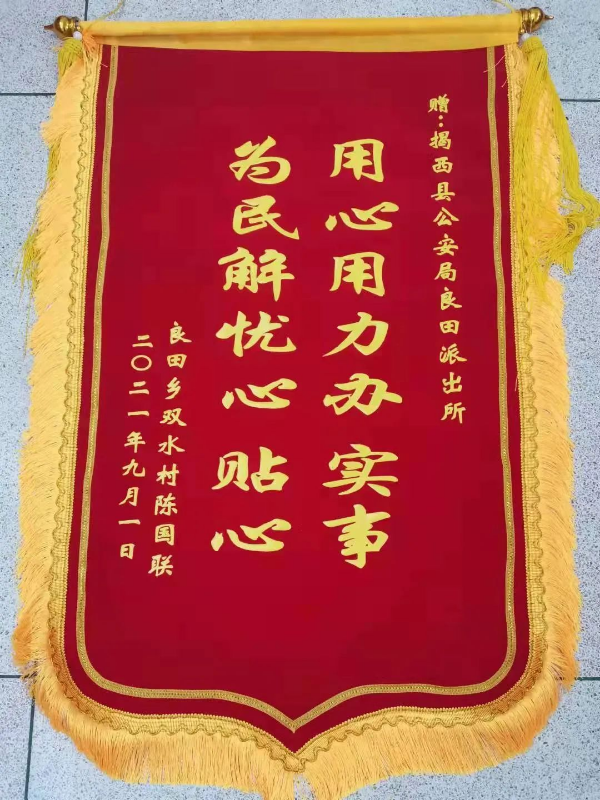 赠：揭西县公安局良田派出所
用心用力办实事
为民解忧心贴心
良田乡双水村陈国联
二〇二一年九月一日